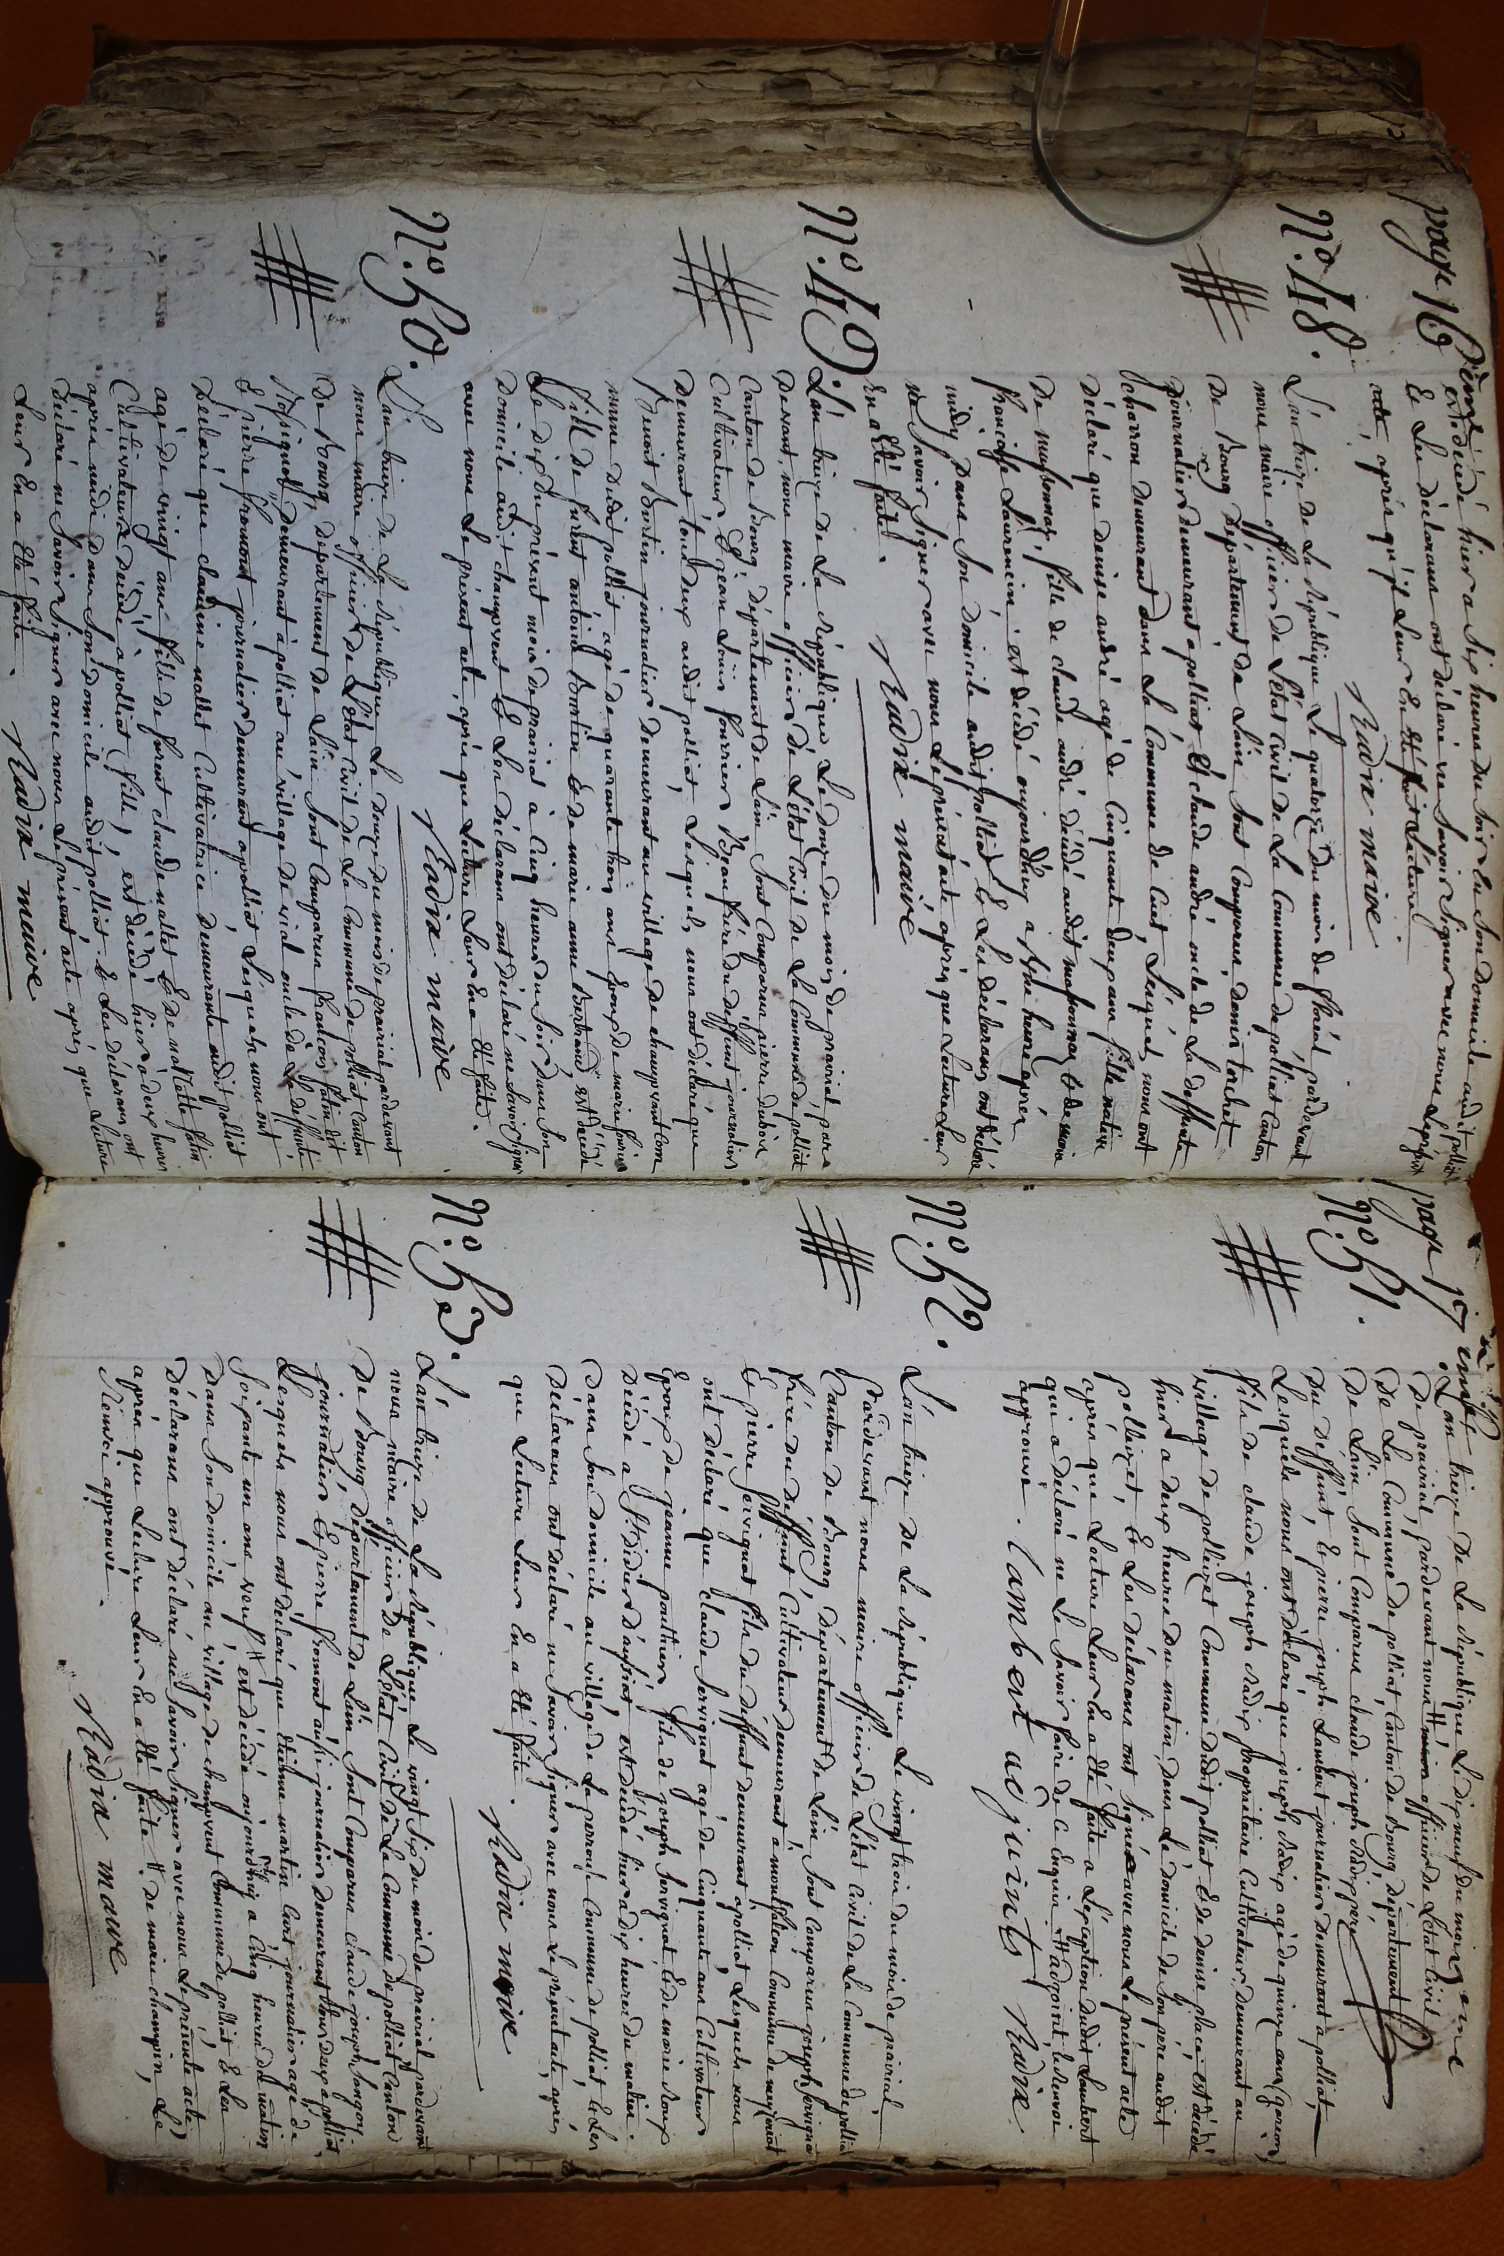 page 16 ème
est décédé hier a six heures du soir en son domicile audit polliat
Et Les déclarans ont déclaré ne savoir signer avec nous Le présent
acte, après qu'il Leur En été fait Lecture
Nadix maire
N.º 48.
L'an treize de La république Le quatorze du mois de floréal pardevant
nous maire officier de L'état Civil de La Commune de polliat Canton
De Bourg Département de L'ain sont Comparus denis
journalier demeurant a polliat Et claude andré oncle de La deffunte
Charron demeurant dans La Commune de Curt, Lesquels nous ont
déclaré que denise andré agé de Cinquante deux ans fille native
De mafsonnas, fille de claude andré décédé audit mafsonnas Et de
françoise Laurencin est décédé aujourdhuy a une heure après
midy Dans Son domicile audit polliat Et Les déclarans ont déclaré
ne savoir signer avec nous Le présent acte après que Lecture Leur
En a Eté faite.
Nadix maire
N.º 49.
L'an treize de La république Le douze du mois de prairial pard
devant nous maire officier de L'état Civil de La Commune de polliat
Canton de Bourg, département de L'ain sont Comparus pierre dubois
Cultivateur Et jean Louis fourrier Beau frère du deffunt journalier
demeurant tous deux audit polliat, Lesquels, nous ont déclaré que
Benoit Bortin journalier demeurant au village de champvent Com
mune dudit polliat agé de quarante trois ans Epoux de marie fourrier
fils de furent antoine Bortin Et de marie anne Bertrand est décédé
Le dix du présent mois de prairial à Cinq heures du soir dans son
Domicile audit champvent Et Les déclarans ont déclaré ne savoir signer
avec nous Le présent acte, après que Lecture Leur En a Eté faite.
Nadix maire
N.º 50.
L'an treize de La république Le douze du mois de prairial pardevant
nous maire officier de L'état Civil de La Commune de polliat Canton
De Bourg, département de L'ain sont Comparus francois fatin dit
Rofsignol, demeurant à polliat au village de vial oncle de La deffunte
Et pierre fromont journalier demeurant a polliat Lesquels nous ont
Déclaré que claudine nallet Cultivatrice demeurante audit polliat
agé de vingt ans fille de furent claude nallet Et de fatin
Cultivateurs décédé a polliat fille, est décédé hier à deux heures
après midi dans son domicile audit polliat Et Les déclarans ont
déclaré ne savoir signer avec nous Le présent acte après que Lecture
Leur En a Eté faite.
Nadix maire
page 17 ème
N.º 51.
L'an treize De La république Le dix neuf du mois
De prairial, pardevant nous # officier de L'état Civil
De La Commune de polliat, Canton de Bourg, département
De L'ain sont Comparus claude joseph Nadix pere
Du deffunt, Et pierre joseph Lambert journalier demeurant à polliat,
Lesquels nous ont déclaré que joseph Nadix agé de quinze ans garcon,
fils de claude joseph Nadix propriétaire Cultivateur, demeurant au
village de pollaizet Commune dudit polliat Et de denise place est décédé
hier a deux heures du matin, dans Le domicile de son père audit
pollaizet, Et Les déclarans ont signé avec nous Le présent acte
après que Lecture Leur En a Eté faite a L'exception dudit Lambert
qui a déclaré ne Le savoir faire de Ce Enquis # adjoint, Le renvoi
approuvé. Lambert adjoint Nadix
N.º 52.
L'an treize de La république Le vingt trois du mois de prairial,
Pardevant nous maire officier de L'état civil de La Commune de polliat
Canton de Bourg département de L'ain, sont Comparus joseph servignat
frère du deffunt Cultivateur demeurant à montfalcon Commune de
Et pierre servignat fils du deffunt demeurant à polliat Lesquels nous
ont déclaré que claude servignat agé de Cinquante ans Cultivateur
Epoux de jeanne pouthier, fils de joseph servignat Et de marie Roux
Décédé a St. Didier d'aufsiat, est décédé hier a dix heures du matin
dans Son domicile au village de La perrouse Commune de polliat, Et Les
Déclarans ont déclaré ne savoir signer avec nous Le présent acte, après
que Lecture Leur En a Eté faite.
Nadix maire
N.º 53.
L'an treize de La république Le vingt six du mois de prairial pardevant
nous maire officier de L'état Civil de La Commune de polliat Canton
De Bourg département de L'ain sont Comparus claude joseph
journalier Et pierre fromont aufsi journalier demeurant tous deux a polliat,
Lesquels nous ont déclaré que Etienne martin Curt journalier agé de
soixante un ans veuf # est décédé aujourdhuy a Cinq heures du matin
Dans Son domicile au village de champvent Commune de polliat Et Les
Déclarans ont déclaré ne savoir signer avec nous Le présent acte,
après que Lecture Leur En a Eté faite # de marie champin, Le
Renvoi approuvé.
Nadix maire